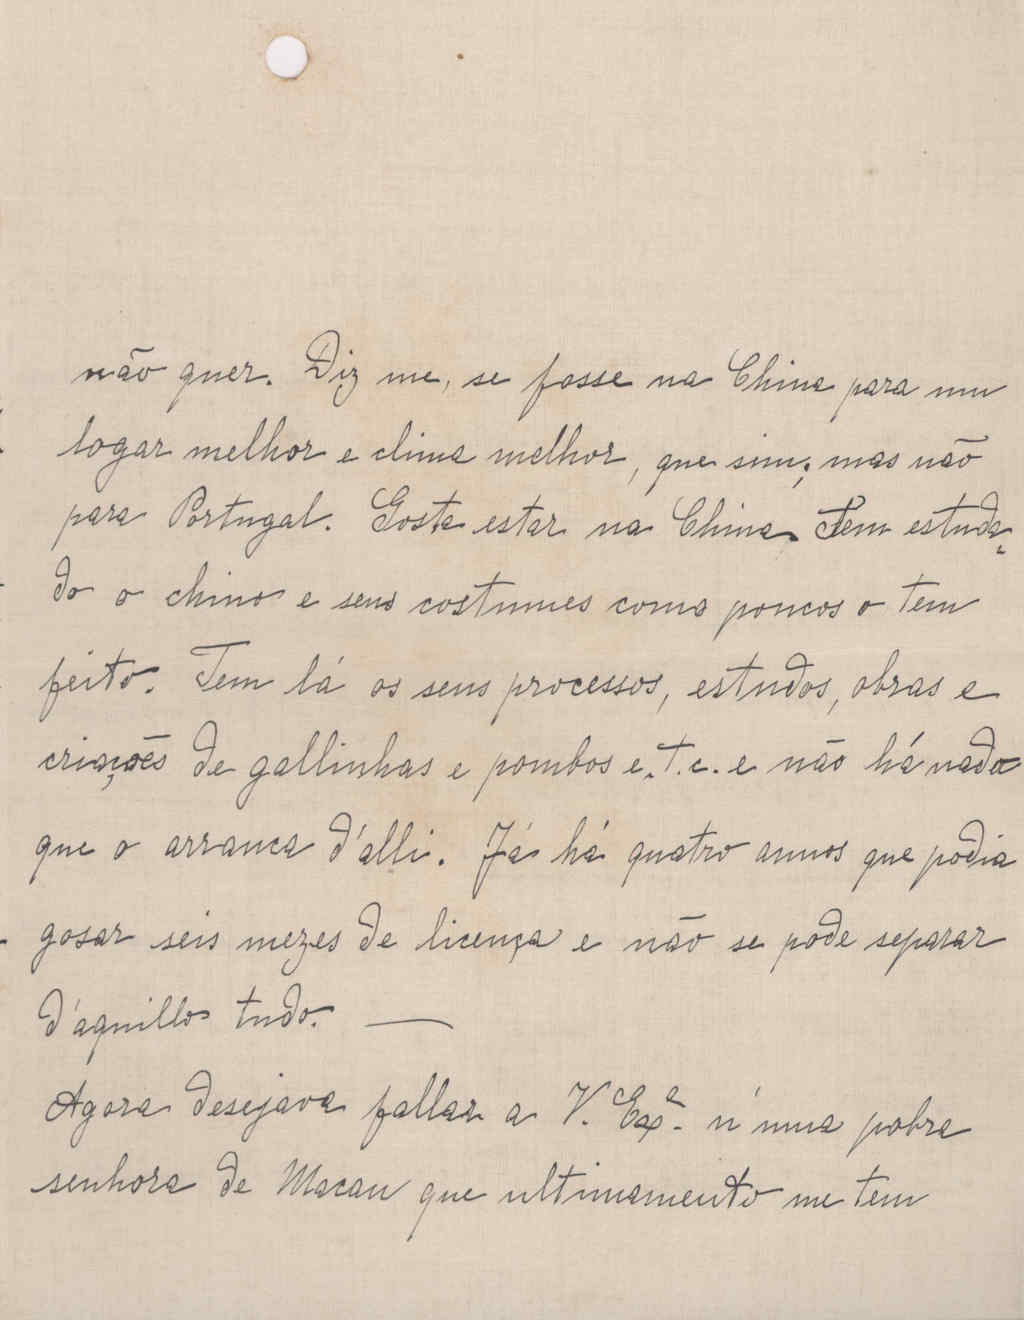 não quer. Diz me, se fosse na China para um
logar melhor e clima melhor, que sim, mas não
para Portugal. Gosta estar na China. Tem estuda-
do o chino e seus costumes como poucos o tem
feito. Tem lá os seus processos, estudos, obras e
criações de gallinhas e pombos e.t.c. e não há nada
que o arranca d'alli. Já há quatro annos que podia
gosar seis mezes de licença e não se pode separar
d'aquillo tudo. —
Agora desejava fallar a V. Exª. n'uma pobre
senhora de Macau que ultimamento me tem